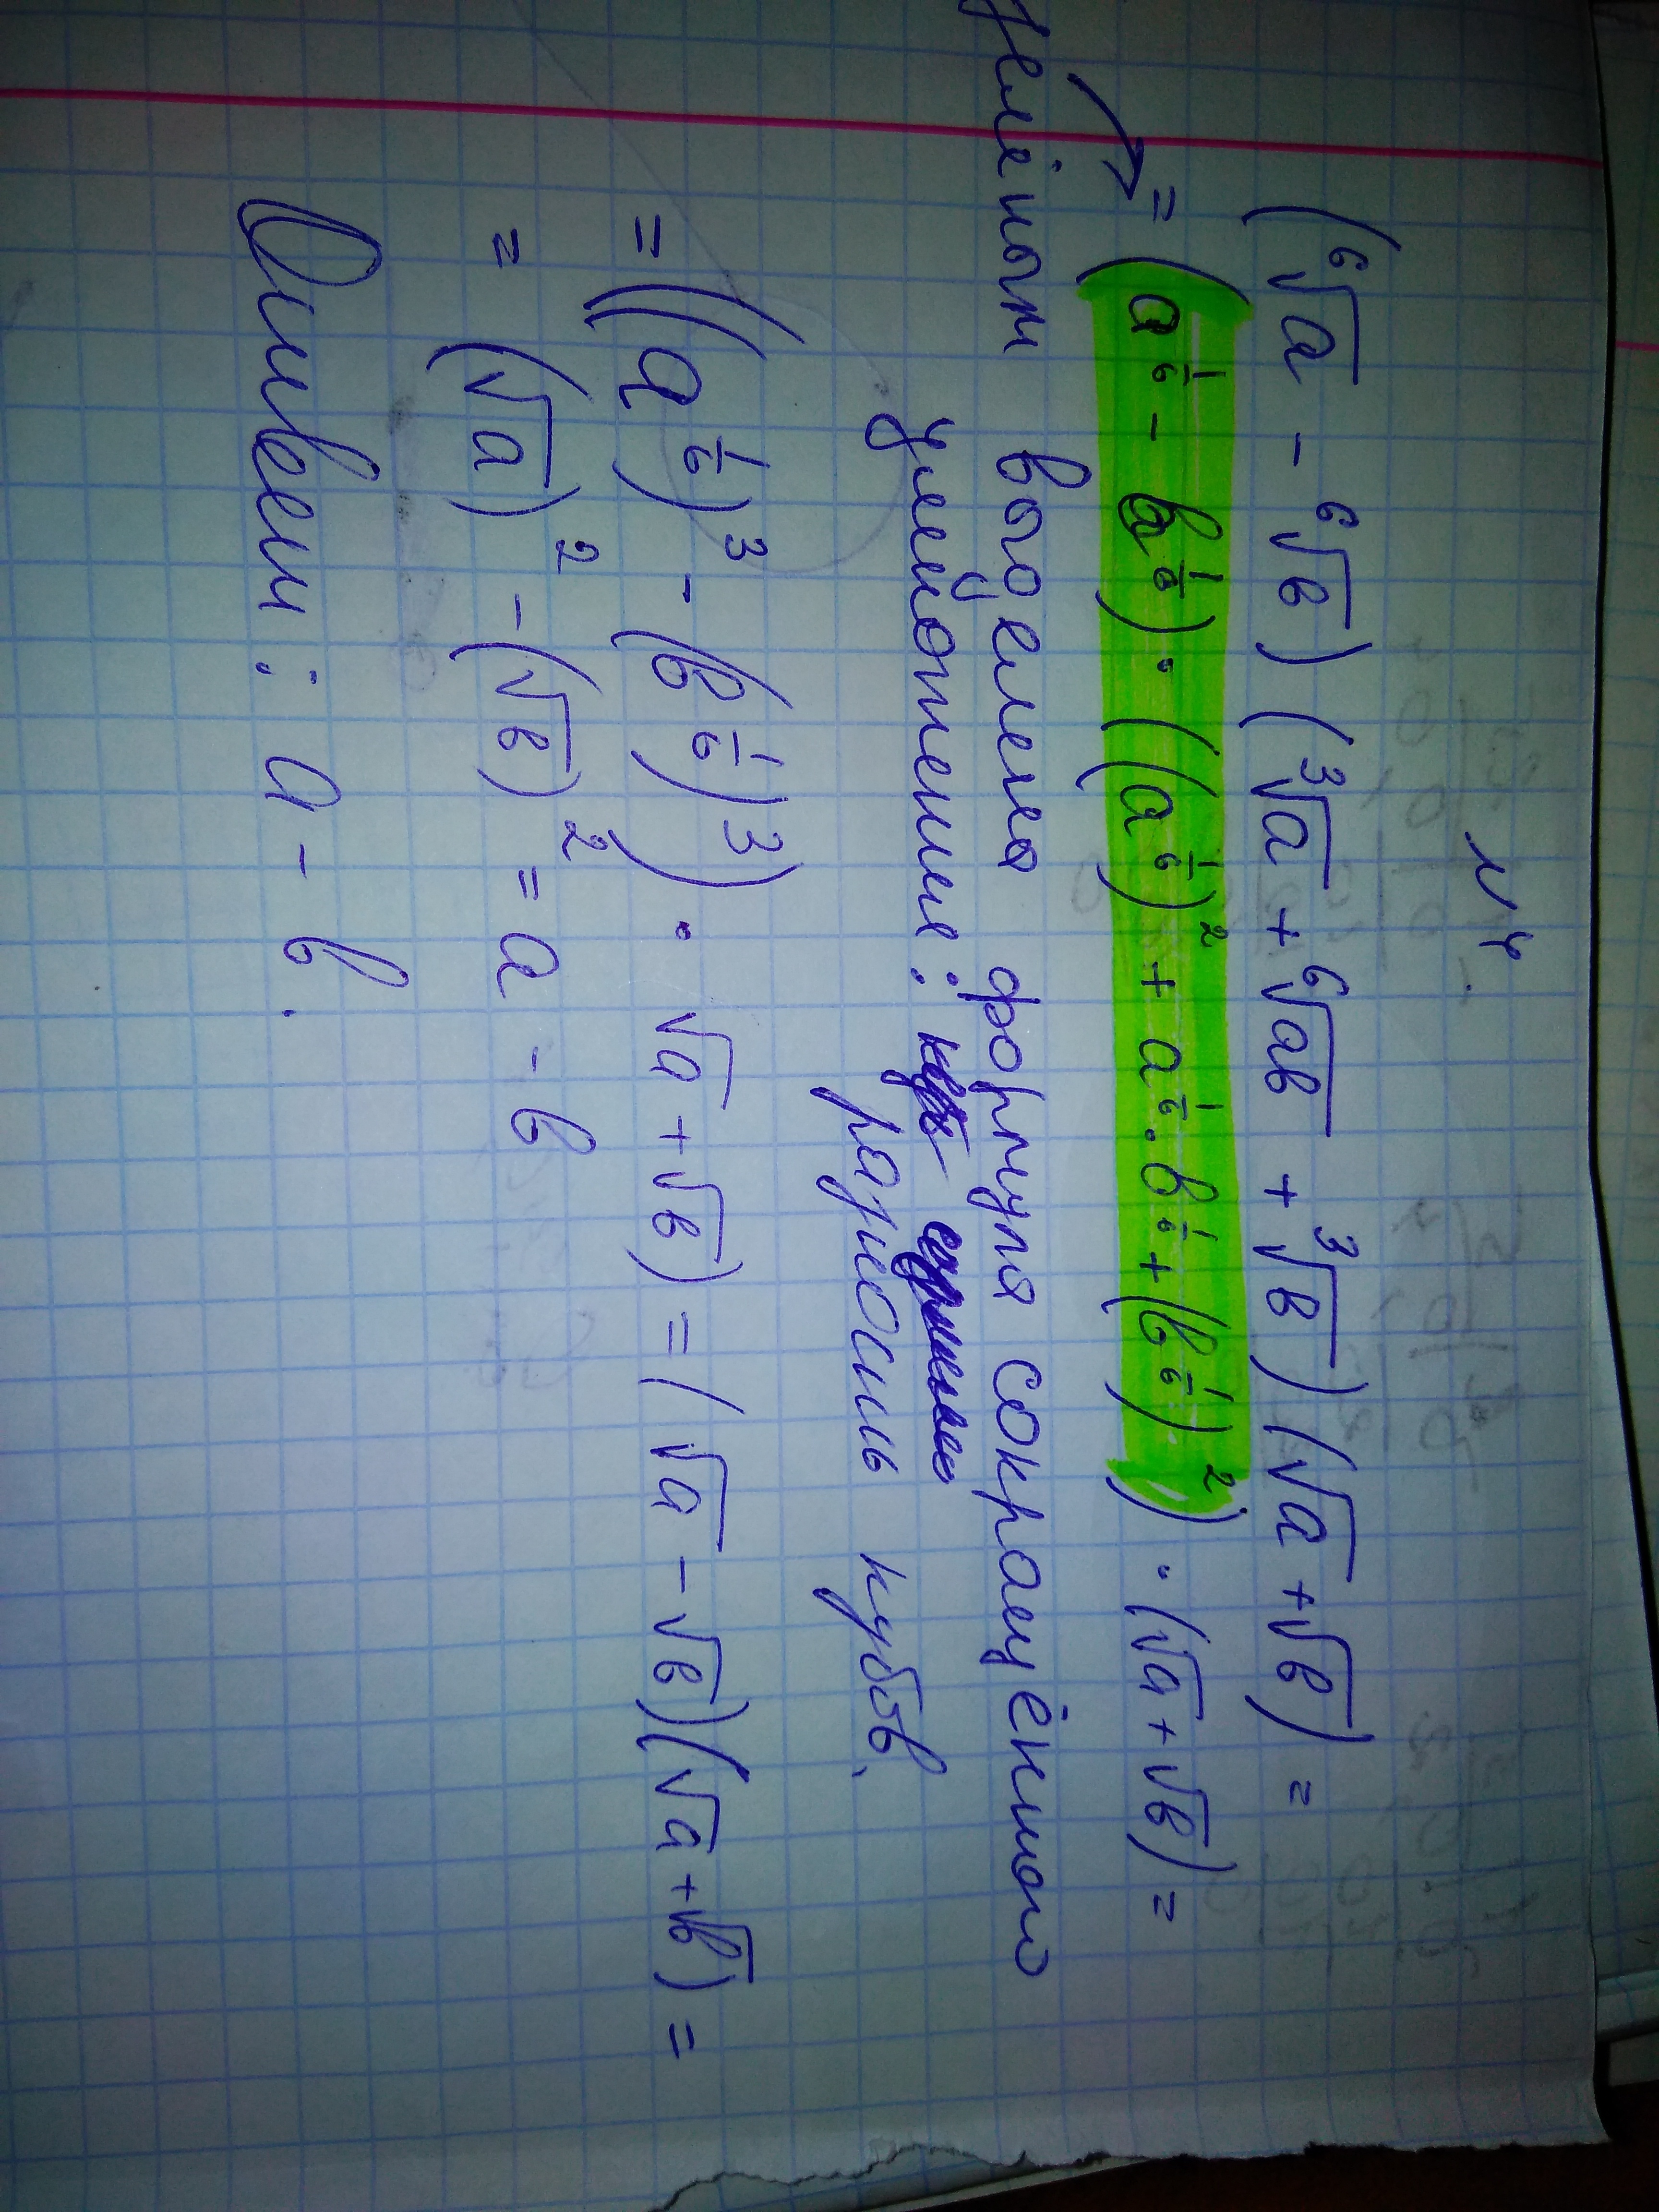 N 4.
(⁶√a - ⁶√b) (³√a + ⁶√ab + ³√b) (√a + √b) =
= (a^{1/6} - b^{1/6}) · ((a^{1/6})² + a^{1/6} · b^{1/6} + (b^{1/6})²) · (√a + √b) =
зелёным выделена формула сокращённого
умножения:
разность кубов.
= ((a^{1/6})³ - (b^{1/6})³) · √a + √b) = (√a - √b)(√a + √b) =
= (√a)² - (√b)² = a - b
Ответ: a - b.